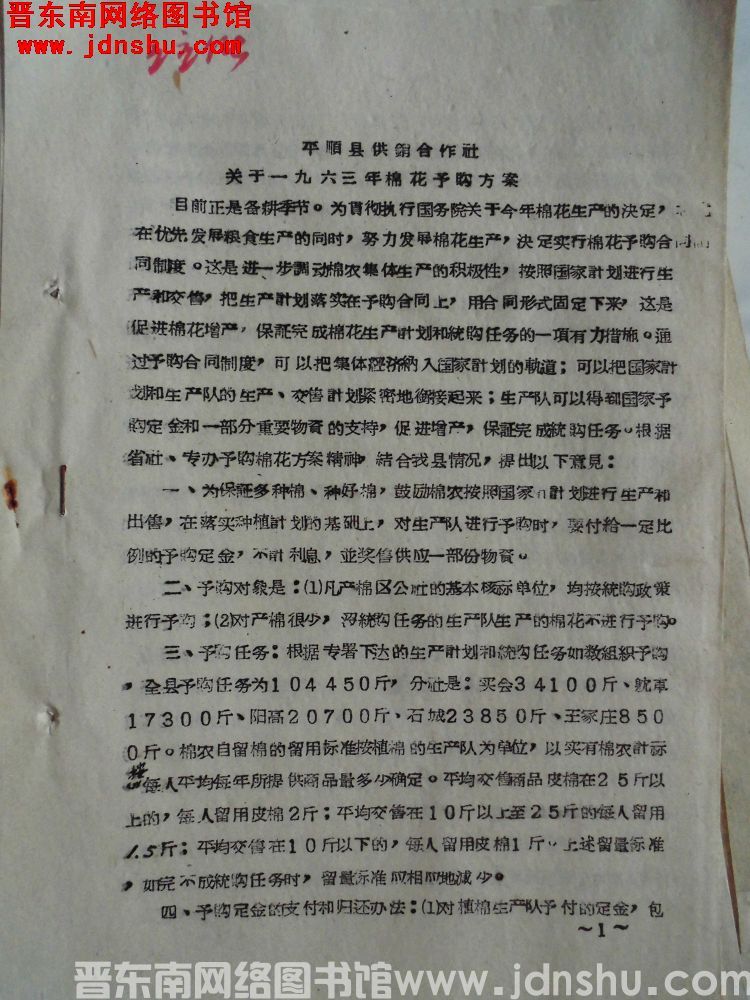 晋东南网络图书馆
www.jdnshu.com
平順县供銷合作社
关于一九六三年棉花予购方案
目前正是备耕季节。为貫彻执行国务院关于今年棉花生产的决定，
在优先发展粮食生产的同时，努力发展棉花生产，决定实行棉花予购合同
同制度。这是进一步調动棉农集体生产的积极性，按照国家計划进行生
产和交售，把生产計划落实在予购合同上，用合同形式固定下来，这是
促进棉花增产，保証完成棉花生产計划和統购任务的一項有力措施。通
过予购合同制度，可以把集体經济納入国家計划的軌道；可以把国家計
划和生产队的生产、交售計划紧密地衔接起来；生产队可以得到国家予
购定金和一部分重要物資的支持，促进增产，保証完成統购任务。根据
省社、专办予购棉花方案精神，結合我县情况，提出以下意見：
一、为保証多种棉、种好棉，鼓励棉农按照国家計划进行生产和
出售，在落实种植計划的基础上，对生产队进行予购时，要付給一定比
例的予购定金，不計利息，並奖售供应一部份物資。
二、予购对象是：(1)凡产棉区公社的基本核标单位，均按統购政策
进行予购；(2)对产棉很少，沒統购任务的生产队生产的棉花不进行予购。
三、予购任务：根据专署下达的生产計划和統购任务如数組织予购
，全县予购任务为104450斤，分社是：实会34100斤、虹車
17300斤、阳高20700斤、石城23850斤、王家庄850
0斤。棉农自留棉的留用标准按植棉的生产队为单位，以实有棉农計标
按每人平均每年所提供商品量多少确定。平均交售商品皮棉在25斤以
上的，每人留用皮棉2斤；平均交售在10斤以上至25斤的每人留用
1.5斤；平均交售在10斤以下的，每人留用皮棉1斤。上述留量标准
，如完不成統购任务时，留量标准应相应地减少。
四、予购定金的支付和归还办法：(1)对植棉生产队予付的定金，包
～1～
晋东南网络图书馆www.jdnshu.com